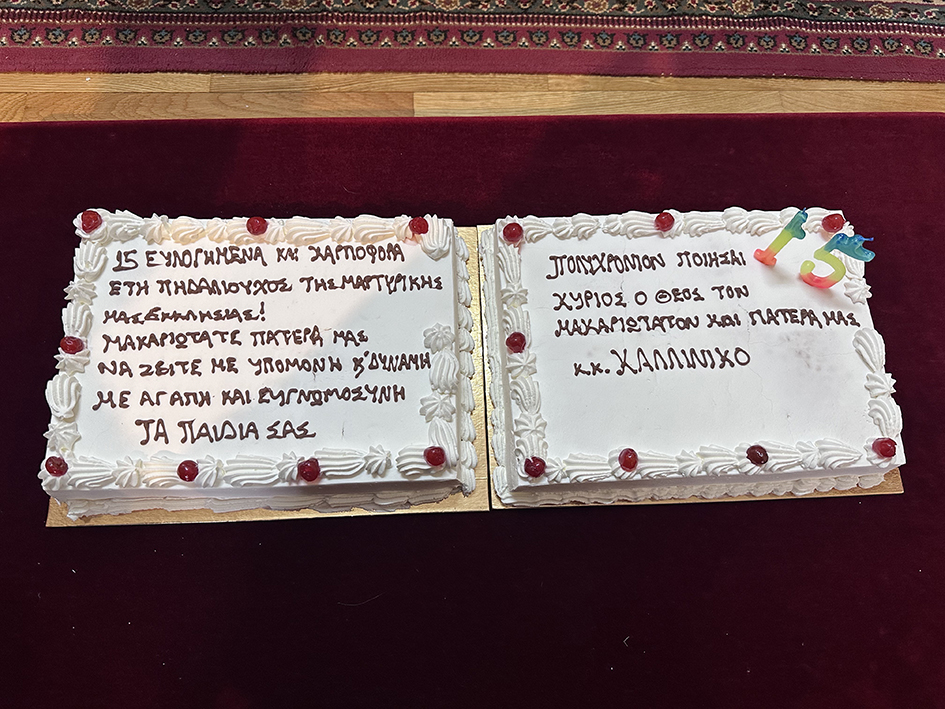 15 ΕΥΛΟΓΗΜΕΝΑ ΚΑΙ ΚΑΡΠΟΦΟΡΑ
ΕΤΗ ΠΗΔΑΛΙΟΥΧΟΣ ΤΗΣ ΜΑΡΤΥΡΙΚΗΣ
ΜΑΣ ΕΚΚΛΗΣΙΑΣ!
ΜΑΚΑΡΙΩΤΑΤΕ ΠΑΤΕΡΑ ΜΑΣ
ΝΑ ΖΕΙΤΕ ΜΕ ΥΠΟΜΟΝΗ Κ' ΔΥΝΑΜΗ
ΜΕ ΑΓΑΠΗ ΚΑΙ ΕΥΓΝΩΜΟΣΥΝΗ
ΤΑ ΠΑΙΔΙΑ ΣΑΣ
15
ΠΟΛΥΧΡΟΝΙΟΝ ΠΟΙΗΣΑΙ
ΚΥΡΙΟΣ Ο ΘΕΟΣ ΤΟΝ
ΜΑΚΑΡΙΩΤΑΤΟΝ ΚΑΙ ΠΑΤΕΡΑ ΜΑΣ
κ.κ. ΚΑΛΛΙΝΙΚΟ